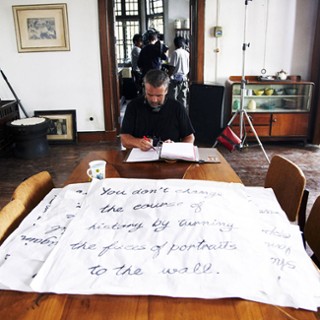 You don't change
the course of
history by turning
the faces of portraits
to the wall.